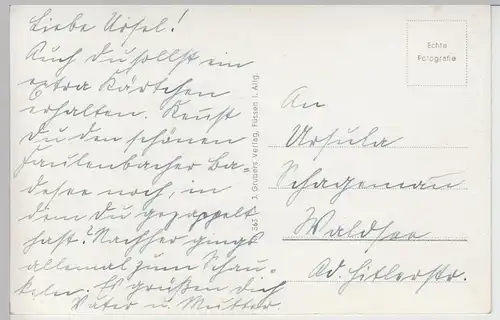 Liebe Ursel!
Auch Du sollst ein
extra Kärtchen
erhalten. Kennst
Du den schönen
Faulenbacher Ba-
desee noch, in
dem Du gezappelt
hast? Nachher gings
allemal zum Schau-
keln. Es grüßen Dich
Vater u. Mutter.
363 J. Grubers Verlag, Füssen i. Allg.
Echte
Fotografie
An
Ursula
Schagemann
Waldsee
Ad. Hitlerstr.